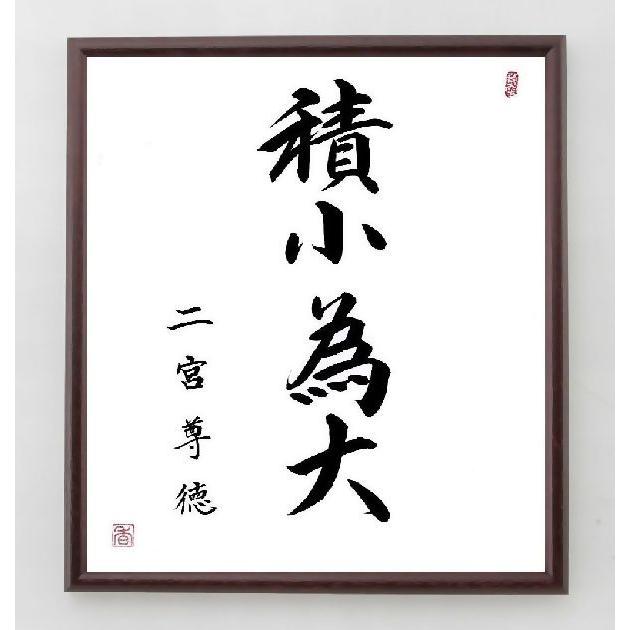 積小為大
二宮尊徳